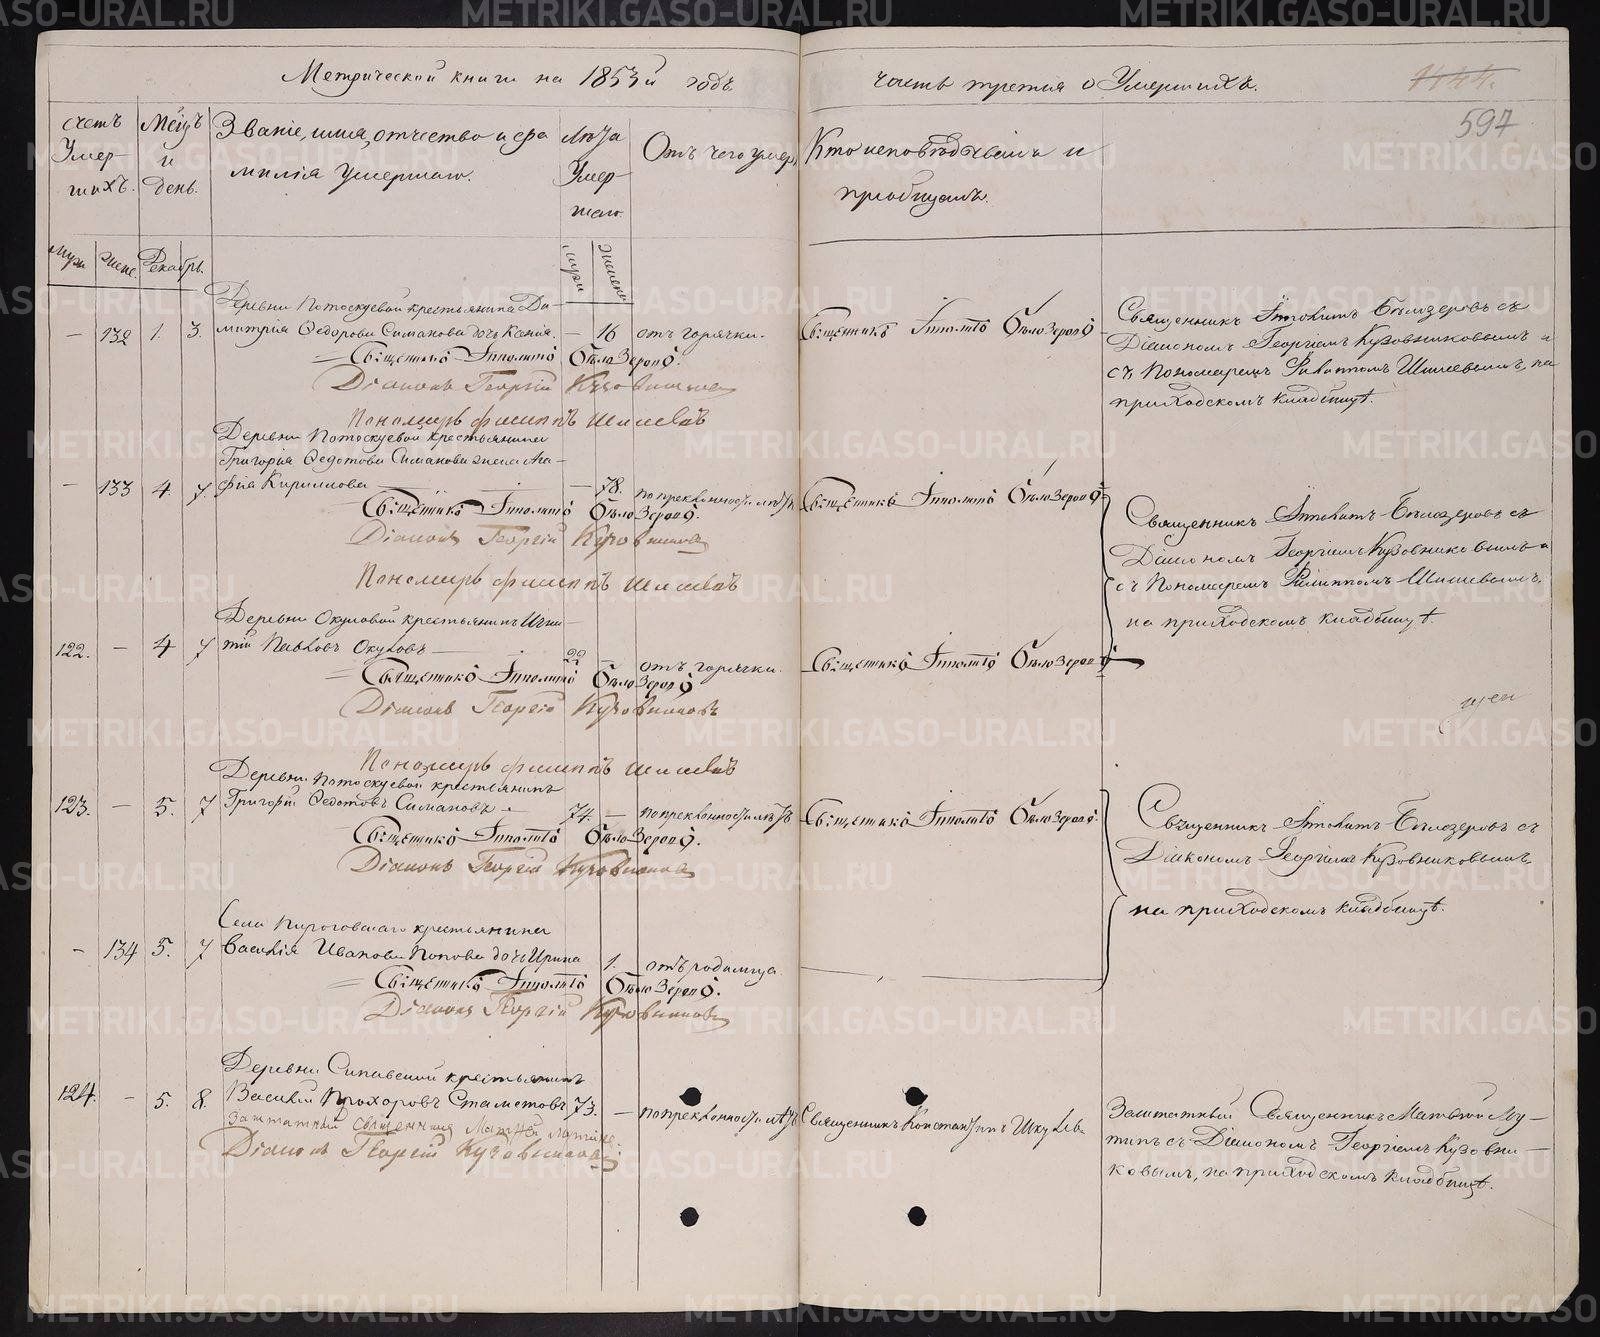 Метрической книги на 1853й годъ
часть третия о Умершихъ.
1144.
597
счетъ Умер-шихъ.
Мсцъ и день.
Званіе, имя, отчество и фа
милія умершаго.
Лѣта Умер-шаго
Отъ чего умеръ
Кто исповѣдывалъ и
пріобщалъ.
муж
женс.
Декабрь.
муж
женска
Деревни Потоскуевой крестьянина Ди-
— 132 1. 3. митрія Федорова Симанова дочь Ксенія. 16 отъ горячки.
Священникъ Ипполитъ Бѣлозеровъ.
Діаконъ Георгій Кузовниковъ
Пономарь филиппъ Шишевъ
Священникъ Ипполитъ Бѣлозеровъ
Священникъ Ипполитъ Бѣлозеровъ съ
Діакономъ Георгіемъ Кузовниковымъ и
съ Пономаремъ Филиппомъ Шишевымъ, на
приходскомъ кладбищѣ.
Деревни Потоскуевой крестьянина
Григорія Федотова Симанова жена Ага-
— 133 4. 7. фія Кирилова — 78. по преклонности лѣтъ
Священникъ Ипполитъ Бѣлозеровъ.
Діаконъ Георгій Кузовниковъ
Пономарь филиппъ Шишевъ
Священникъ Ипполитъ Бѣлозеровъ
Священникъ Ипполитъ Бѣлозеровъ съ
Діакономъ Георгіемъ Кузовниковымъ и
съ Пономаремъ Филиппомъ Шишевымъ,
на приходскомъ кладбищѣ.
Деревни Окуловой крестьянинъ Игна-
122. — 4 7 тій Павловъ Окуловъ — 22 — отъ горячки.
Священникъ Ипполитъ Бѣлозеровъ
Діаконъ Георгій Кузовниковъ
Пономарь филиппъ Шишевъ
Священникъ Ипполитъ Бѣлозеровъ
Деревни Потоскуевой крестьянинъ
123. — 5. 7 Григорій Федотовъ Симановъ — 74. — по преклонности лѣтъ
Священникъ Ипполитъ Бѣлозеровъ.
Діаконъ Георгій Кузовниковъ
Священникъ Ипполитъ Бѣлозеровъ.
Священникъ Ипполитъ Бѣлозеровъ съ
Діакономъ Георгіемъ Кузовниковымъ,
на приходскомъ кладбищѣ.
Села Пироговскаго крестьянина
— 134 5. 7 Василія Иванова Попова дочь Ирина 1. отъ родимца.
Священникъ Ипполитъ Бѣлозеровъ.
Діаконъ Георгій Кузовниковъ
Деревни Сипавской крестьянинъ
124. — 5. 8. Василій Прохоровъ Стаметовъ 73. — по преклонности лѣтъ
Заштатный священникъ Матвей
Діаконъ Георгій Кузовниковъ
Священникъ Константинъ
Заштатный Священникъ Матвѣй Лу-
тинъ съ Діакономъ Георгіемъ Кузовни-
ковымъ, на приходскомъ кладбищѣ.
METRIKI.GASO-URAL.RU